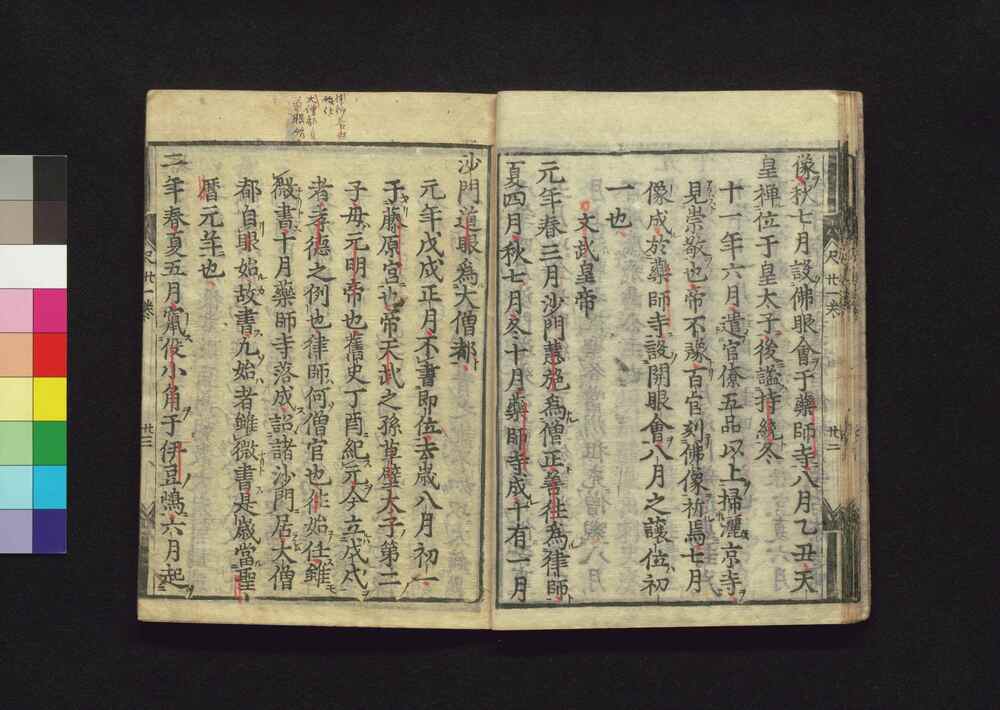 像秋七月設佛眼會于藥師寺八月乙丑天
皇禪位于皇太子後謚持統冬
十一年六月遣官僚五品以上掃灑京寺
見崇敬也帝不豫百官刻佛像祈焉七月
像成於藥師寺設開眼會八月之讓位初
一也
文武皇帝
元年春三月沙門慧施為僧正善徃為律師
夏四月秋七月冬十月藥師寺成十有二月
沙門道眼為大僧都
元年戊戌正月不書即位去歲八月初一
于藤原宮也帝天武之孫草壁太子第二
子母元明帝也舊史丁酉紀元今立戊戌
者孝德之例也律師何僧官也徃始任雖
微書十月藥師寺落成詔諸沙門居大僧
都自眼始故書九始者雖微書是歲當聖
曆元年也
二年春夏五月竄役小角于伊豆嶋六月起
尺廿一卷
廿二
尺廿一卷
廿三